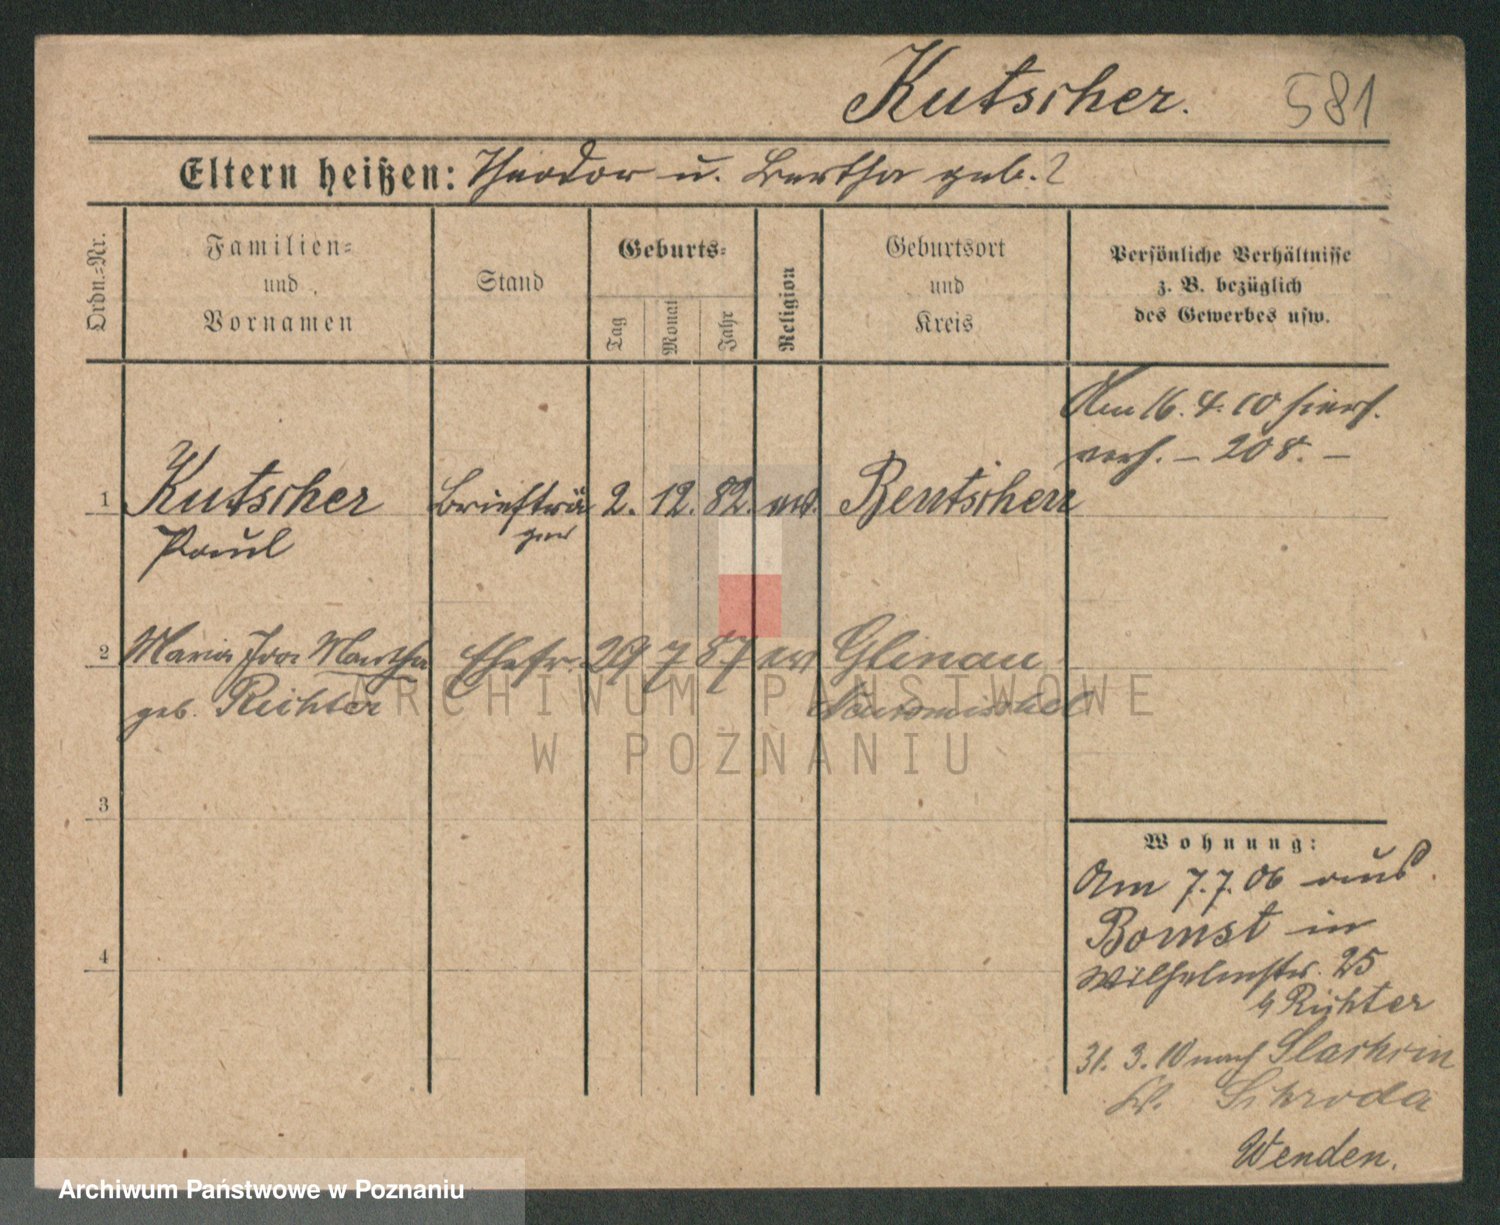 Kutscher. 581
Eltern heißen: Theodor u. Bertha geb. ?
Ordn.=Nr.
Familien=
und
Vornamen
Stand
Geburts=
Tag
Monat
Jahr
Religion
Geburtsort
und
Kreis
Persönliche Verhältnisse
z. B. bezüglich
des Gewerbes usw.
Am 16. 4. 10 hiers.
verh. – 208. –
1 Kutscher Briefträ 2. 12. 82. ev. Bentschen
Paul ger
2 Maria Ida Martha Ehefr. 29 7 87 ev Glinau
geb. Richter Neutomischel
3
4
Wohnung:
Am 7. 7. 06 aus
Bomst in
Wilhelmstr. 25
b Richter
31. 3. 10 nach
Kr. Schroda
Wenden.
ARCHIWUM PAŃSTWOWE
W POZNANIU
Archiwum Państwowe w Poznaniu